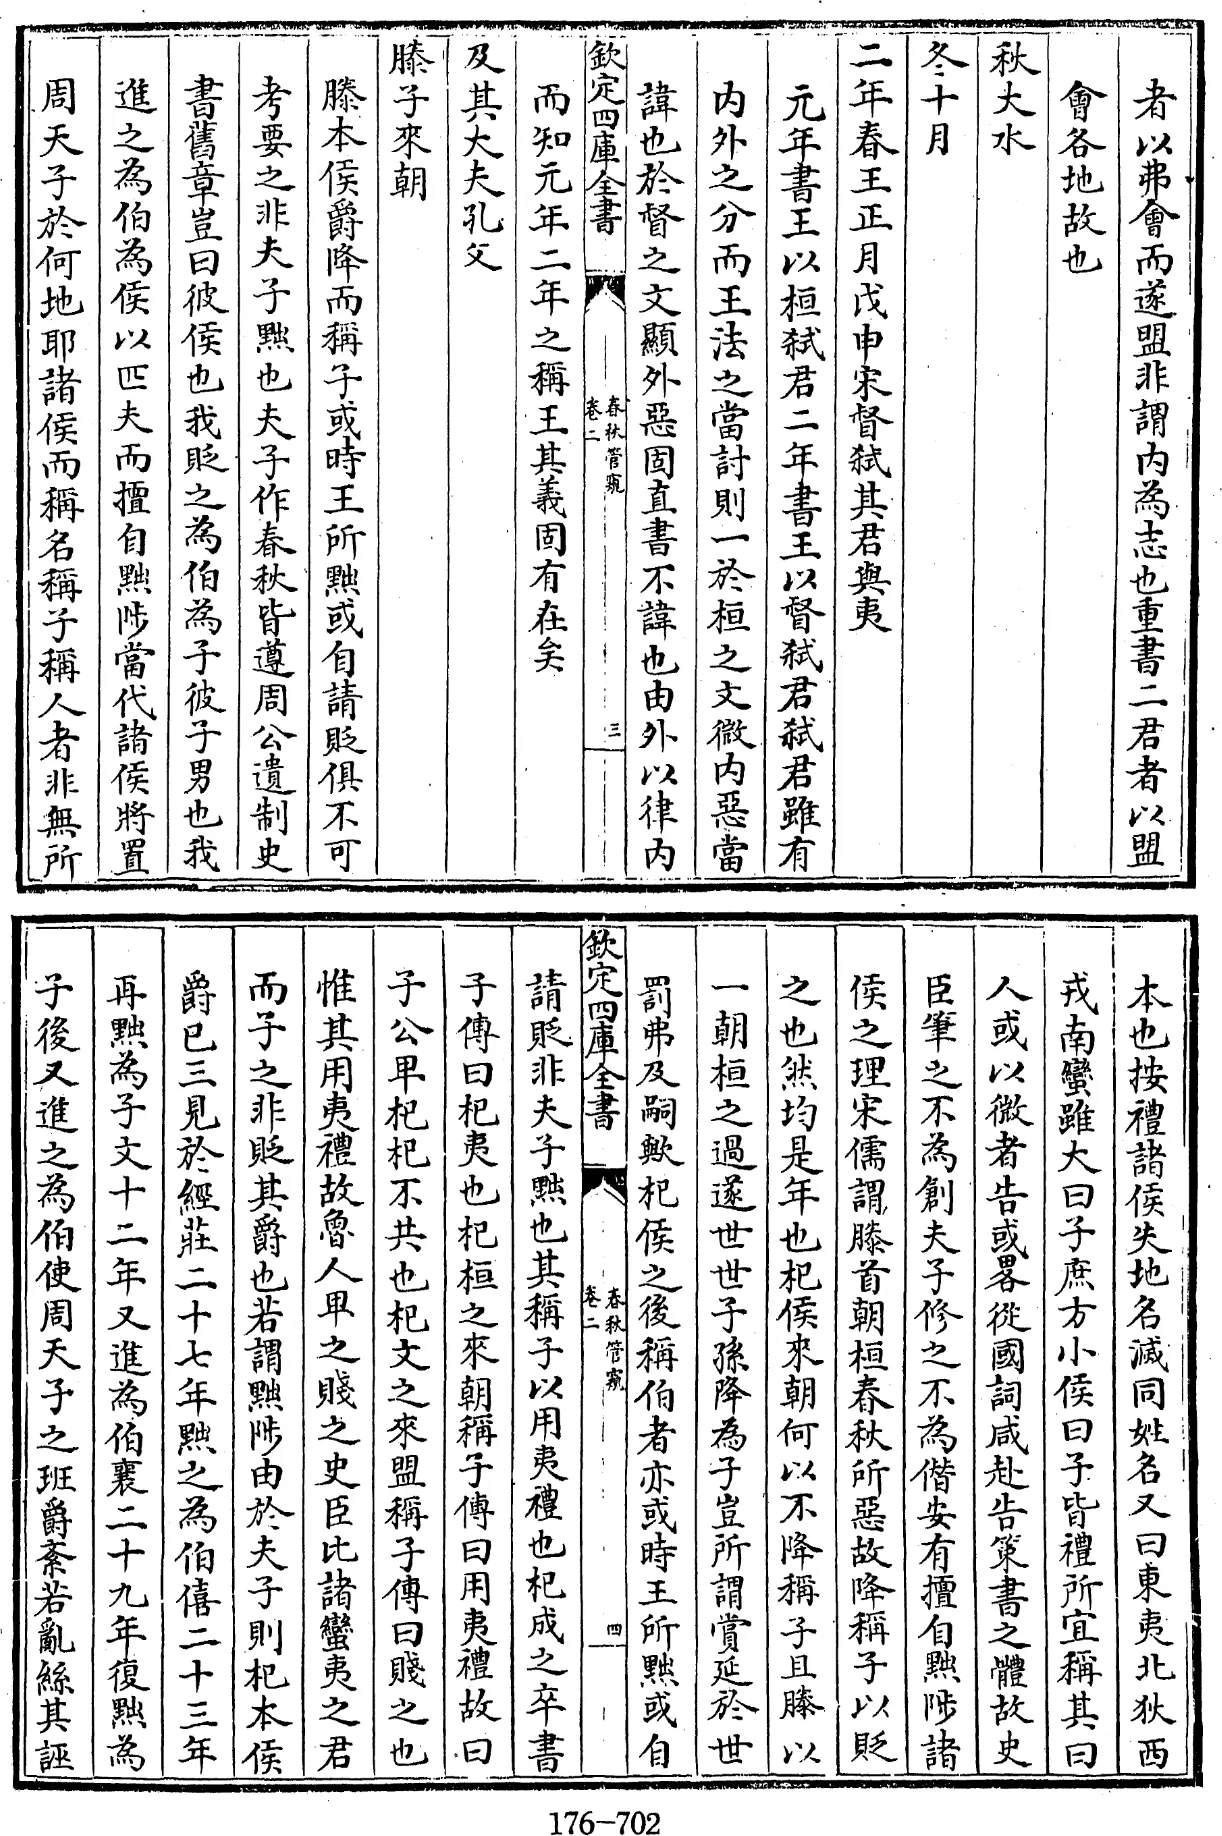 者以弗會而遂盟非謂内為志也重書二君者以盟
會各地故也
秋大水
冬十月
二年春王正月戊申宋督弑其君與夷
元年書王以桓弑君二年書王以督弑君弑君雖有
内外之分而王法之當討則一於桓之文微内惡當
諱也於督之文顯外惡固直書不諱也由外以律内
欽定四庫全書
春秋管窺
卷二
三
而知元年二年之稱王其義固有在矣
及其大夫孔父
滕子來朝
滕本侯爵降而稱子或時王所黜或自請貶俱不可
考要之非夫子黜也夫子作春秋皆遵周公遺制史
書舊章豈曰彼侯也我貶之為伯為子彼子男也我
進之為伯為侯以匹夫而擅自黜陟當代諸侯將置
周天子於何地耶諸侯而稱名稱子稱人者非無所
本也按禮諸侯失地名滅同姓名又曰東夷北狄西
戎南蠻雖大曰子庶方小侯曰子皆禮所宜稱其曰
人或以微者告或畧從國詞咸赴告策書之體故史
臣筆之不為創夫子修之不為僭安有擅自黜陟諸
侯之理宋儒謂滕首朝桓春秋所惡故降稱子以貶
之也然均是年也杞侯來朝何以不降稱子且滕以
一朝桓之過遂世世子孫降為子豈所謂賞延於世
罰弗及嗣歟杞侯之後稱伯者亦或時王所黜或自
欽定四庫全書
春秋管窺
卷二
四
請貶非夫子黜也其稱子以用夷禮也杞成之卒書
子傳曰杞夷也杞桓之來朝稱子傳曰用夷禮故曰
子公卑杞杞不共也杞文之來盟稱子傳曰賤之也
惟其用夷禮故魯人卑之賤之史臣比諸蠻夷之君
而子之非貶其爵也若謂黜陟由於夫子則杞本侯
爵已三見於經莊二十七年黜之為伯僖二十三年
再黜為子文十二年又進為伯襄二十九年復黜為
子後又進之為伯使周天子之班爵紊若亂絲其誣
176-702